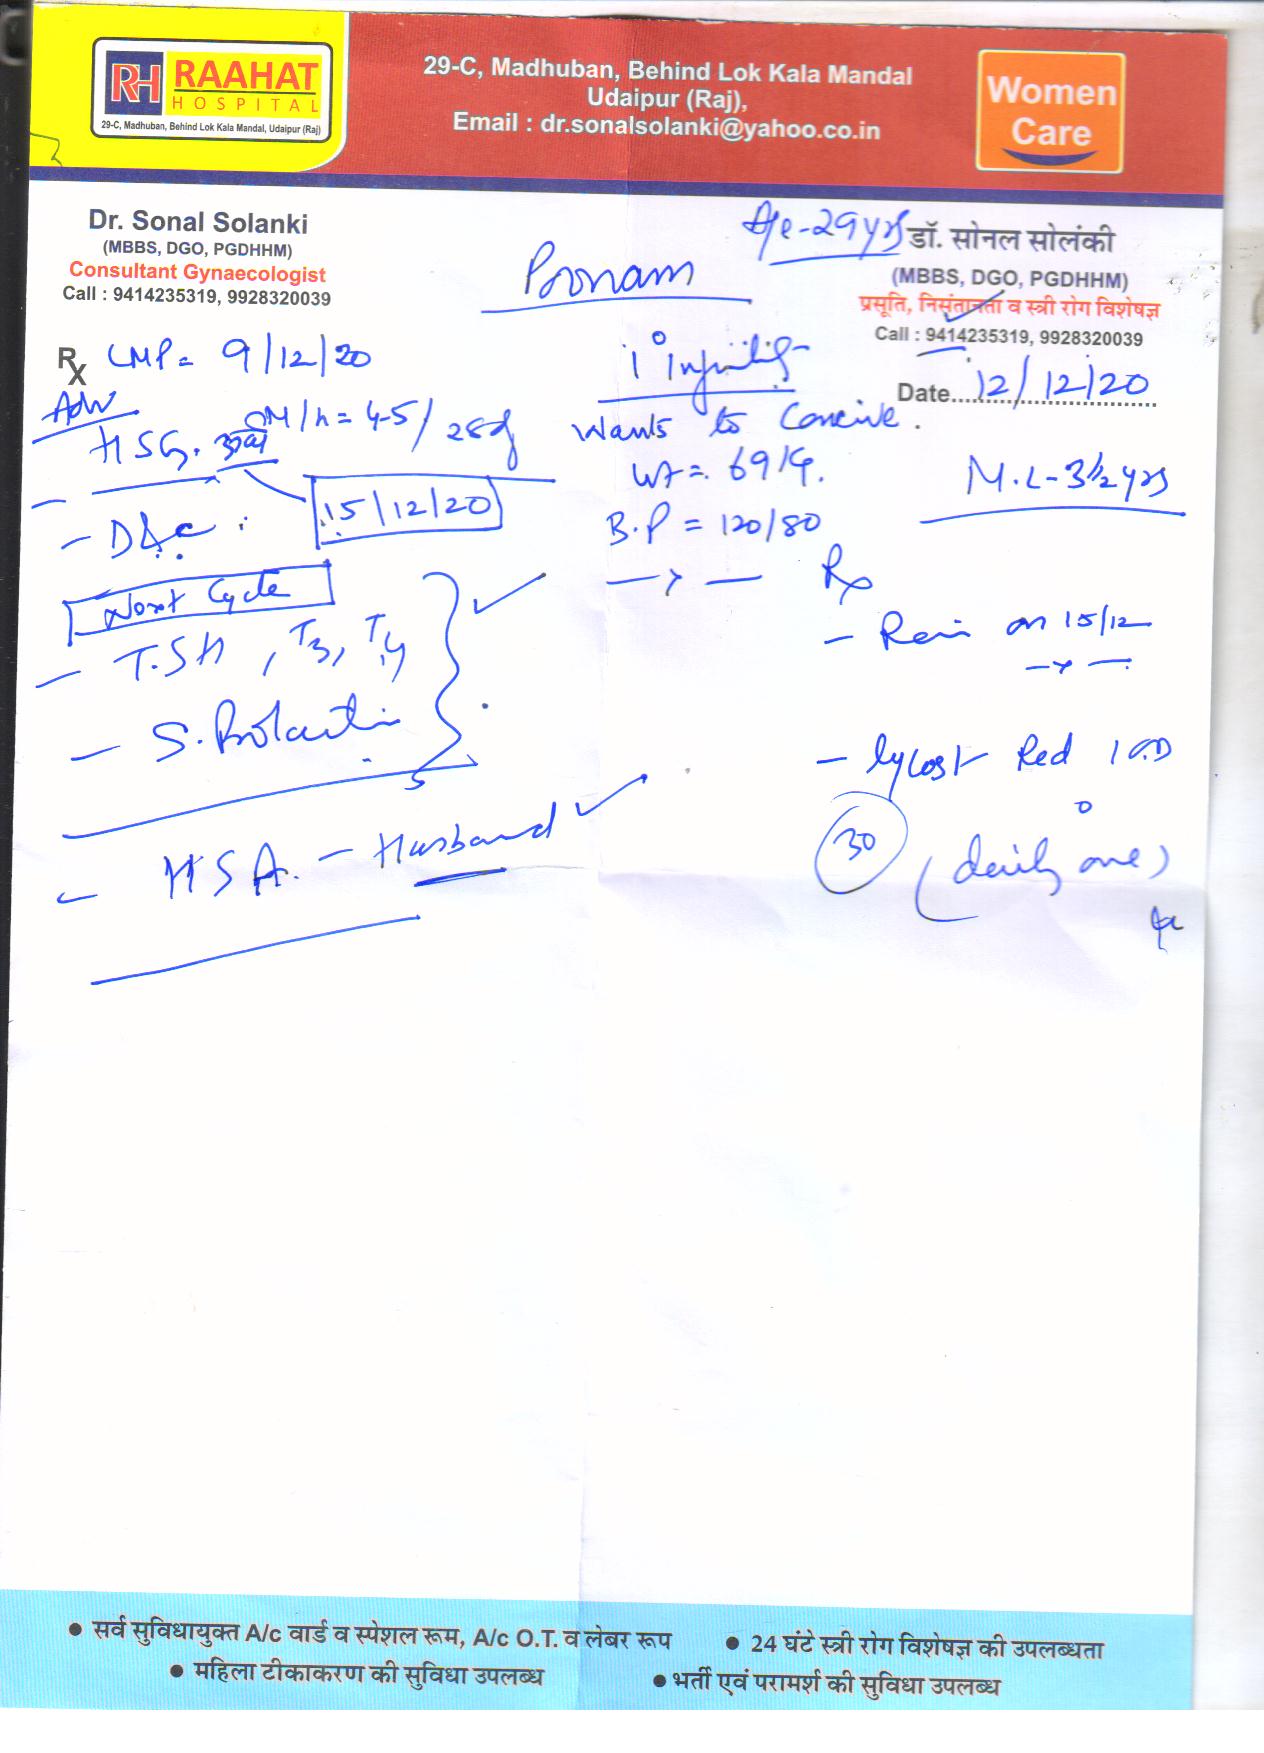 RH RAAHAT
HOSPITAL
29-C, Madhuban, Behind Lok Kala Mandal, Udaipur (Raj)
29-C, Madhuban, Behind Lok Kala Mandal
Udaipur (Raj),
Email : dr.sonalsolanki@yahoo.co.in
Women
Care
Dr. Sonal Solanki
(MBBS, DGO, PGDHHM)
Consultant Gynaecologist
Call : 9414235319, 9928320039
Poonam
Age-29yrs
डॉ. सोनल सोलंकी
(MBBS, DGO, PGDHHM)
प्रसूति, निसंतानता व स्त्री रोग विशेषज्ञ
Call : 9414235319, 9928320039
Date....12/12/20
Rx LMP = 9/12/20
M/h = 4-5/28d
1° Infertility
Wants to Conceive.
Wt =. 69 kg.
B.P = 120/80
M.L-3½ yrs
Adv
HSG.
15/12/20
- D&C
Next Cycle
- T.SH, T3, T4
- S. Prolactin
- HSA. - Husband
Rx
- Review on 15/12
- lycost Red 1 OD
30
(daily one)
• सर्व सुविधायुक्त A/c वार्ड व स्पेशल रूम, A/c O.T. व लेबर रूप
• 24 घंटे स्त्री रोग विशेषज्ञ की उपलब्धता
• महिला टीकाकरण की सुविधा उपलब्ध
• भर्ती एवं परामर्श की सुविधा उपलब्ध